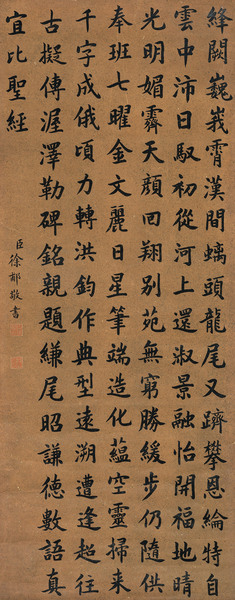 絳闕巍峩霄漢間螭頭龍尾又躋攀恩綸特自
雲中沛日馭初從河上還淑景融怡開福地晴
光明媚霽天顏回翔別苑無窮勝緩步仍隨供
奉班七曜金文麗日星筆端造化蘊空靈掃来
千字成俄頃力轉洪鈞作典型遠溯遭逢超往
古擬傳渥澤勒碑銘親題縑尾昭謙德數語真
宜比聖經
臣徐郙敬書